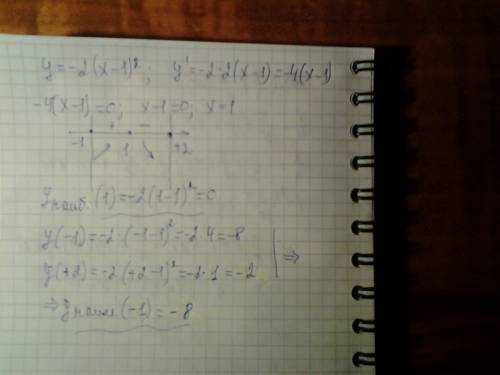 y=-2(x-1)²; y'=-2·2(x-1)=-4(x-1)
-4(x-1)=0; x-1=0; x=1
+ −
-1 1 +2
y наиб. (1)=-2(1-1)²=0
y(-1)=-2·(-1-1)²=-2·4=-8
y(+2)=-2·(+2-1)²=-2·1=-2 | ⇒
⇒ y наим (-1)=-8